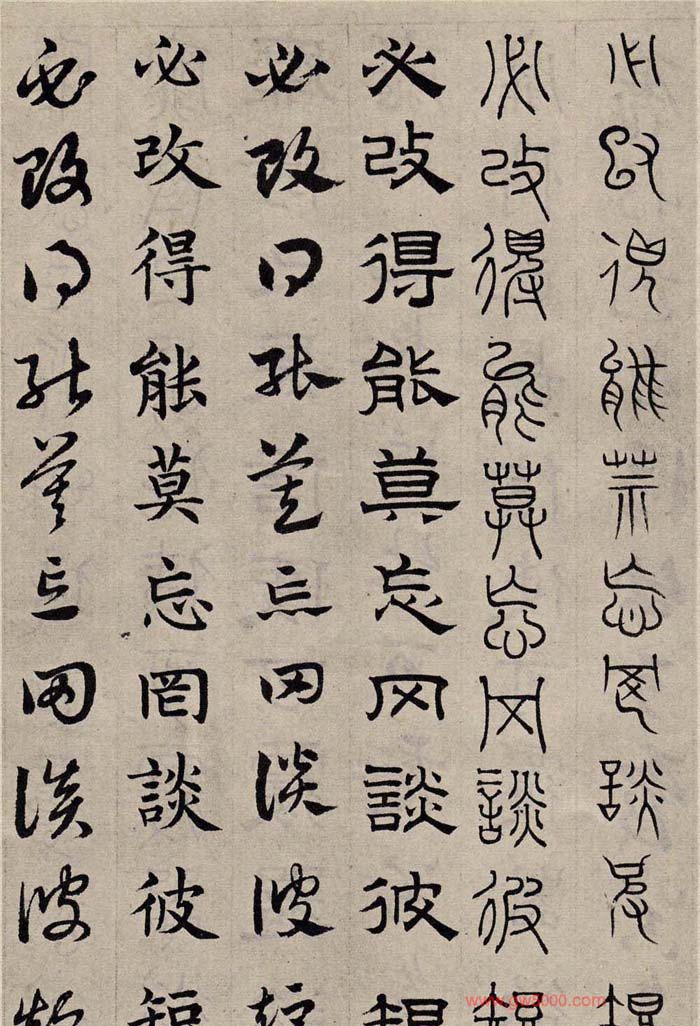 必改得能莫忘罔談彼短
必改得能莫忘罔談彼短
必改得能莫忘罔談彼短
必改得能莫忘罔談彼短
必改得能莫忘罔談彼短
必改得能莫忘罔談彼短
www.gw5000.com